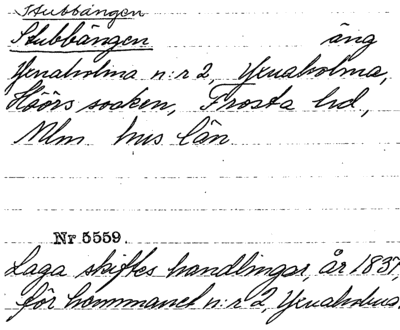 Stubbängen
Stubbängen äng
Yxnaholma n:r 2, Yxnaholma,
Höörs socken, Frosta hd,
Mlm hus län
Nr 5559.
Laga skiftes handlingar, år 1837,
för hemmanet n:r 2, Yxnaholma.